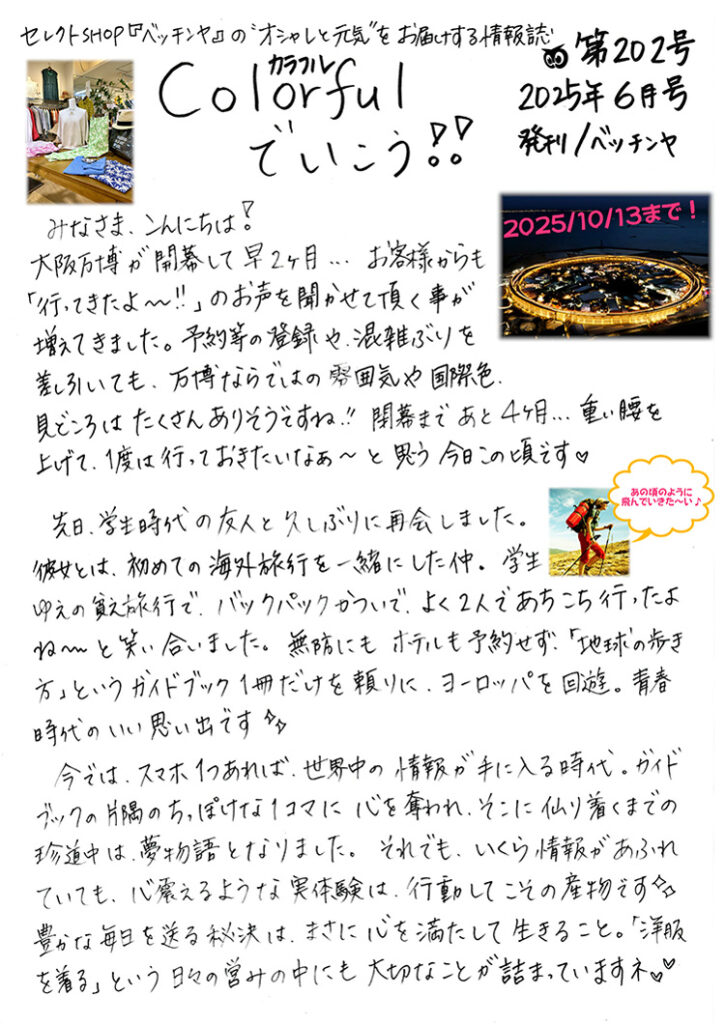 セレクトSHOP『ベッチンヤ』の“オシャレと元気”をお届けする情報誌
第202号
カラフル
Colorful
でいこう!!
2025年6月号
発刊/ベッチンヤ
みなさま、こんにちは!
2025/10/13まで!
大阪万博が開幕して早2ヶ月... お客様からも
「行ってきたよ〜!!」のお声を聞かせて頂く事が
増えてきました。予約等の登録や、混雑ぶりを
差し引いても、万博ならではの雰囲気や国際色、
見どころはたくさんありそうですね!! 閉幕まであと4ヶ月... 重い腰を
上げて、1度は行っておきたいなぁ〜と思う今日この頃です♡
あの頃のように
飛んでいきた〜い♪
先日、学生時代の友人と久しぶりに再会しました。
彼女とは、初めての海外旅行を一緒にした仲。学生
ゆえの貧乏旅行で、バックパックかついで、よく2人であちこち行ったよ
ね〜と笑い合いました。無防にもホテルも予約せず、「地球の歩き
方」というガイドブック1冊だけを頼りに、ヨーロッパを回遊。青春
時代のいい思い出です
今では、スマホ1つあれば、世界中の情報が手に入る時代。ガイド
ブックの片隅のちっぽけな1コマに心を奪われ、そこに辿り着くまでの
珍道中は、夢物語となりました。それでも、いくら情報があふれ
ていても、心震えるような実体験は、行動してこその産物です
豊かな毎日を送る秘決は、まさに心を満たして生きること。「洋服
を着る」という日々の営みの中にも大切なことが詰まっていますネ♡♡